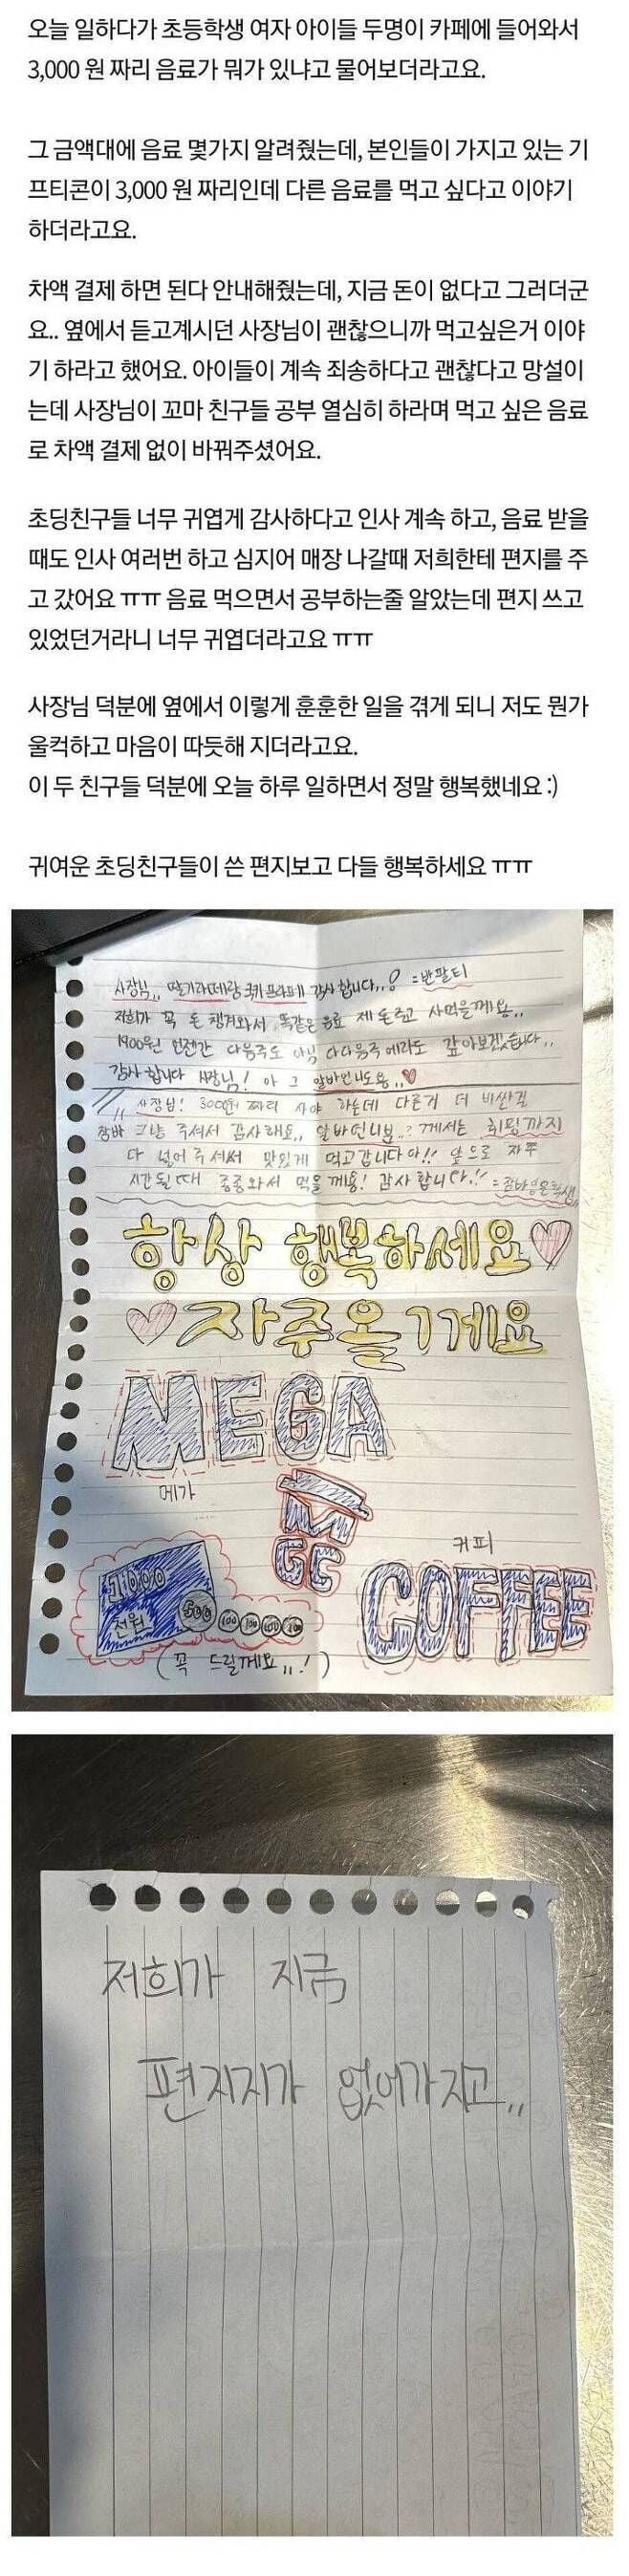 오늘 일하다가 초등학생 여자 아이들 두명이 카페에 들어와서
3,000 원 짜리 음료가 뭐가 있냐고 물어보더라고요.
그 금액대에 음료 몇가지 알려줬는데, 본인들이 가지고 있는 기
프티콘이 3,000 원 짜리인데 다른 음료를 먹고 싶다고 이야기
하더라고요.
차액 결제 하면 된다 안내해줬는데, 지금 돈이 없다고 그러더군
요.. 옆에서 듣고계시던 사장님이 괜찮으니까 먹고싶은거 이야
기 하라고 했어요. 아이들이 계속 죄송하다고 괜찮다고 망설이
는데 사장님이 꼬마 친구들 공부 열심히 하라며 먹고 싶은 음료
로 차액 결제 없이 바꿔주셨어요.
초딩친구들 너무 귀엽게 감사하다고 인사 계속 하고, 음료 받을
때도 인사 여러번 하고 심지어 매장 나갈때 저희한테 편지를 주
고 갔어요 ㅠㅠ 음료 먹으면서 공부하는줄 알았는데 편지 쓰고
있었던거라니 너무 귀엽더라고요 ㅠㅠ
사장님 덕분에 옆에서 이렇게 훈훈한 일을 겪게 되니 저도 뭔가
울컥하고 마음이 따듯해 지더라고요.
이 두 친구들 덕분에 오늘 하루 일하면서 정말 행복했네요 :)
귀여운 초딩친구들이 쓴 편지보고 다들 행복하세요 ㅠㅠ
사장님,, 딸기라떼랑 쿠키프라페 감사합니다..! =반팔티
저희가 꼭 돈 챙겨와서 똑같은 음료 제 돈 주고 사먹을께요..
1900원 언젠간 다음주도 아님 다다음주에라도 갚아보겠습니다..
감사합니다 사장님! 아 그 알바언니도용..♥
사장님! 3000원 짜리 사야 하는데 다른거 더 비싼걸
그냥 주셔서 감사해요,, 알바언니분..? 께서는 휘핑까지
다 넣어주셔서 맛있게 먹고갑니다아!! 앞으로 자주
시간될때 종종와서 먹을께용! 감사합니다!!
항상 행복하세요♡
♡자주올게요
MEGA
메가
M
GC
커피
COFFEE
1000
천원
500 100 100 100 100
(꼭 드릴께요,,!)
저희가 지금
편지지가 없어가지고,,